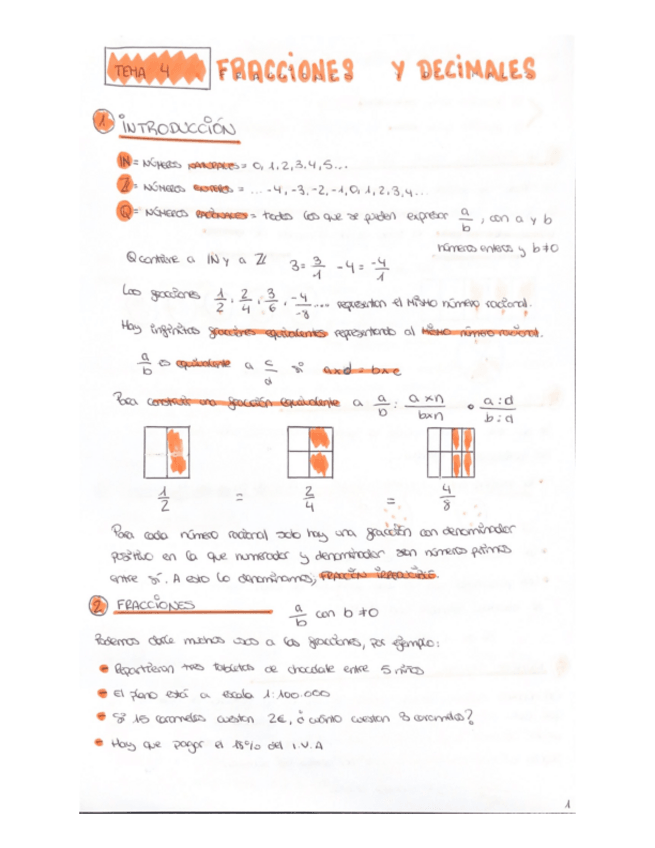 TEMA 4 FRACCIONES Y DECIMALES
1 INTRODUCCIÓN
IN = NÚMEROS NATURALES = 0, 1, 2, 3, 4, 5...
Z = NÚMEROS ENTEROS = ... -4, -3, -2, -1, 0, 1, 2, 3, 4...
Q = NÚMEROS RACIONALES = todos los que se pueden expresar a/b, con a y b
números enteros y b≠0
Q contiene a IN y a Z 3 = 3/1 -4 = -4/1
Las fracciones 1/2, 2/4, 3/6, -4/-8 .... representan el MISMO número racional.
Hay infinitas fracciones equivalentes representando al MISMO número racional.
a/b es equivalente a c/d si axd = bxc
Para construir una fracción equivalente a a/b : axn/bxn o a:d/b:d
1/2 = 2/4 = 4/8
Para cada número racional solo hay una fracción con denominador
positivo en la que numerador y denominador son números primos
entre sí. A esto lo denominamos, FRACCIÓN IRREDUCIBLE.
2 FRACCIONES a/b con b≠0
Podemos darle muchos usos a las fracciones, por ejemplo:
Repartieron tres tabletas de chocolate entre 5 niños
El plano está a escala 1:100.000
Si 15 caramelos cuestan 2€, ¿cuánto cuestan 8 caramelos?
Hay que pagar el 18% del I.V.A
1